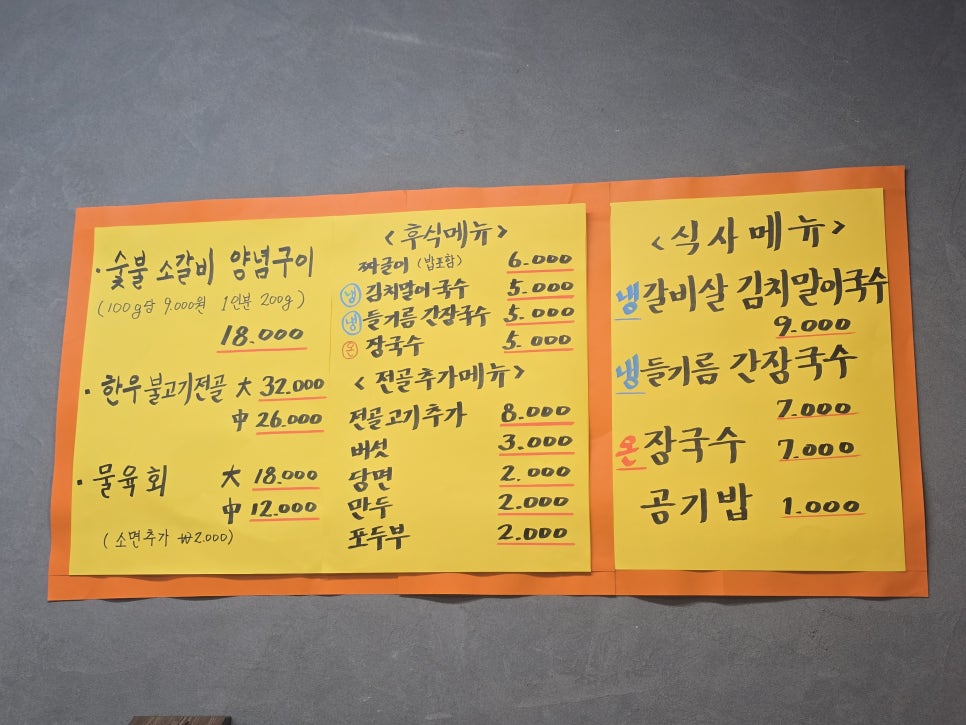 · 숯불 소갈비 양념구이
(100g당 9.000원 1인분 200g)
18.000
· 한우불고기전골 大 32.000
中 26.000
· 물육회 大 18.000
中 12.000
(소면추가 ₩2.000)
<후식메뉴>
짜글이 (밥포함) 6.000
냉 김치말이국수 5.000
냉 들기름 간장국수 5.000
온 장국수 5.000
<전골추가메뉴>
전골고기추가 8.000
버섯 3.000
당면 2.000
만두 2.000
포두부 2.000
<식사메뉴>
냉갈비살 김치말이국수
9.000
냉들기름 간장국수
7.000
온장국수 7.000
공기밥 1.000